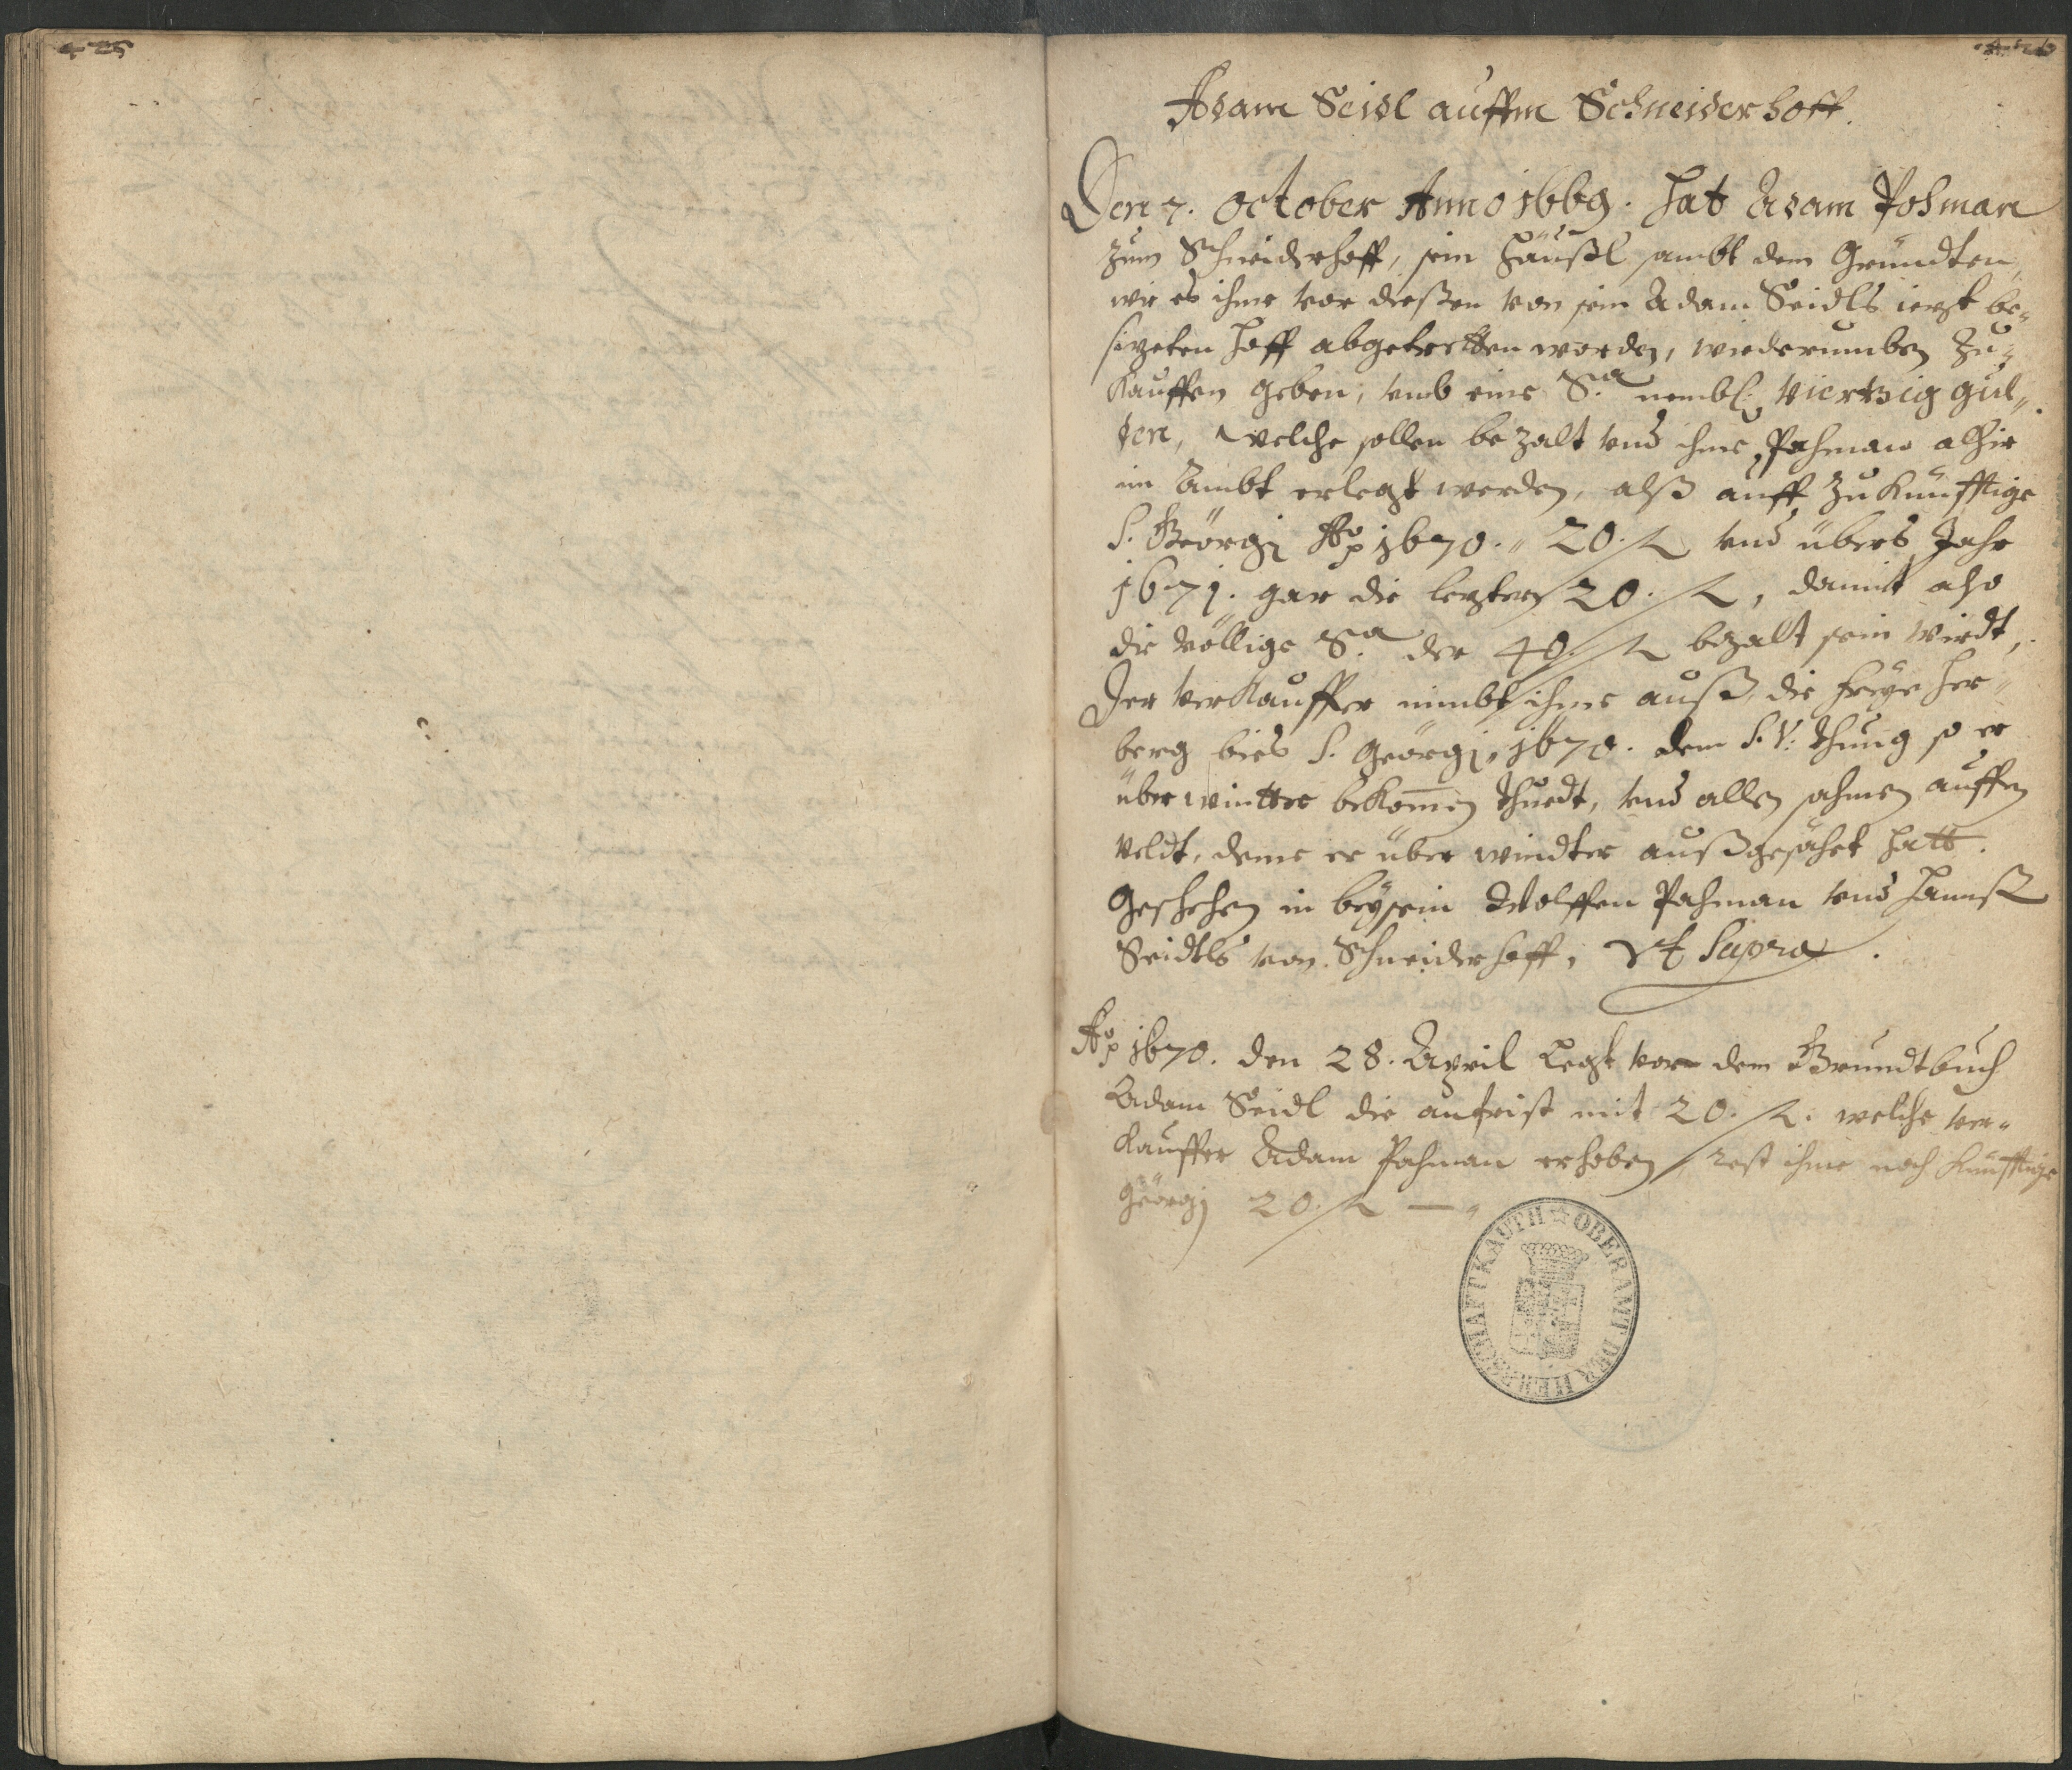 425
426
Adam Seidl auffm Schneiderhoff.
Den 7. October Anno 1669. hat Adam Pohman
zum Schneiderhoff, sein Häußl sambt dem Gründten,
wie es ihme vor dießen von sein Adam Seidls iezt be„
sizeten Hoff abgetretten worden, wiederumben zu„
kauffen geben, vmb eine Sa. nembl: Viertzig gul„
den, welche sollen bezalt vnd ihme Pahman alhie
im Ambt erlegt werden, alß auff zukünfftige
S. Geörgi Ao 1670. 20. fl vnd übers Jahr
1671. gar die lezten 20. fl, damit also
die völlige Sa. der 40. fl bezalt sein wirdt,
Der verkauffer nimbt ihme auß, die freye Her„
berg bies S. Geörgi, 1670. dem S. V. thung so er
über wintter bekommen thuedt, vnd allen sahmen auffm
veldt, deme er über windter außgesähet hatt.
Geschehen in beysein Wolffen Pahman vnd Hannß
Seidtls von Schneiderhoff, Vt Supra.
Ao 1670. den 28. April Legt vor dem Grundtbuch
Adam Seidl die anfrist mit 20. fl: welche ver„
kauffer Adam Pahman erhoben, rest ihme noch künfftige
Geörgj 20. fl —„
OBERAMT DER HERRSCHAFT KAUTH